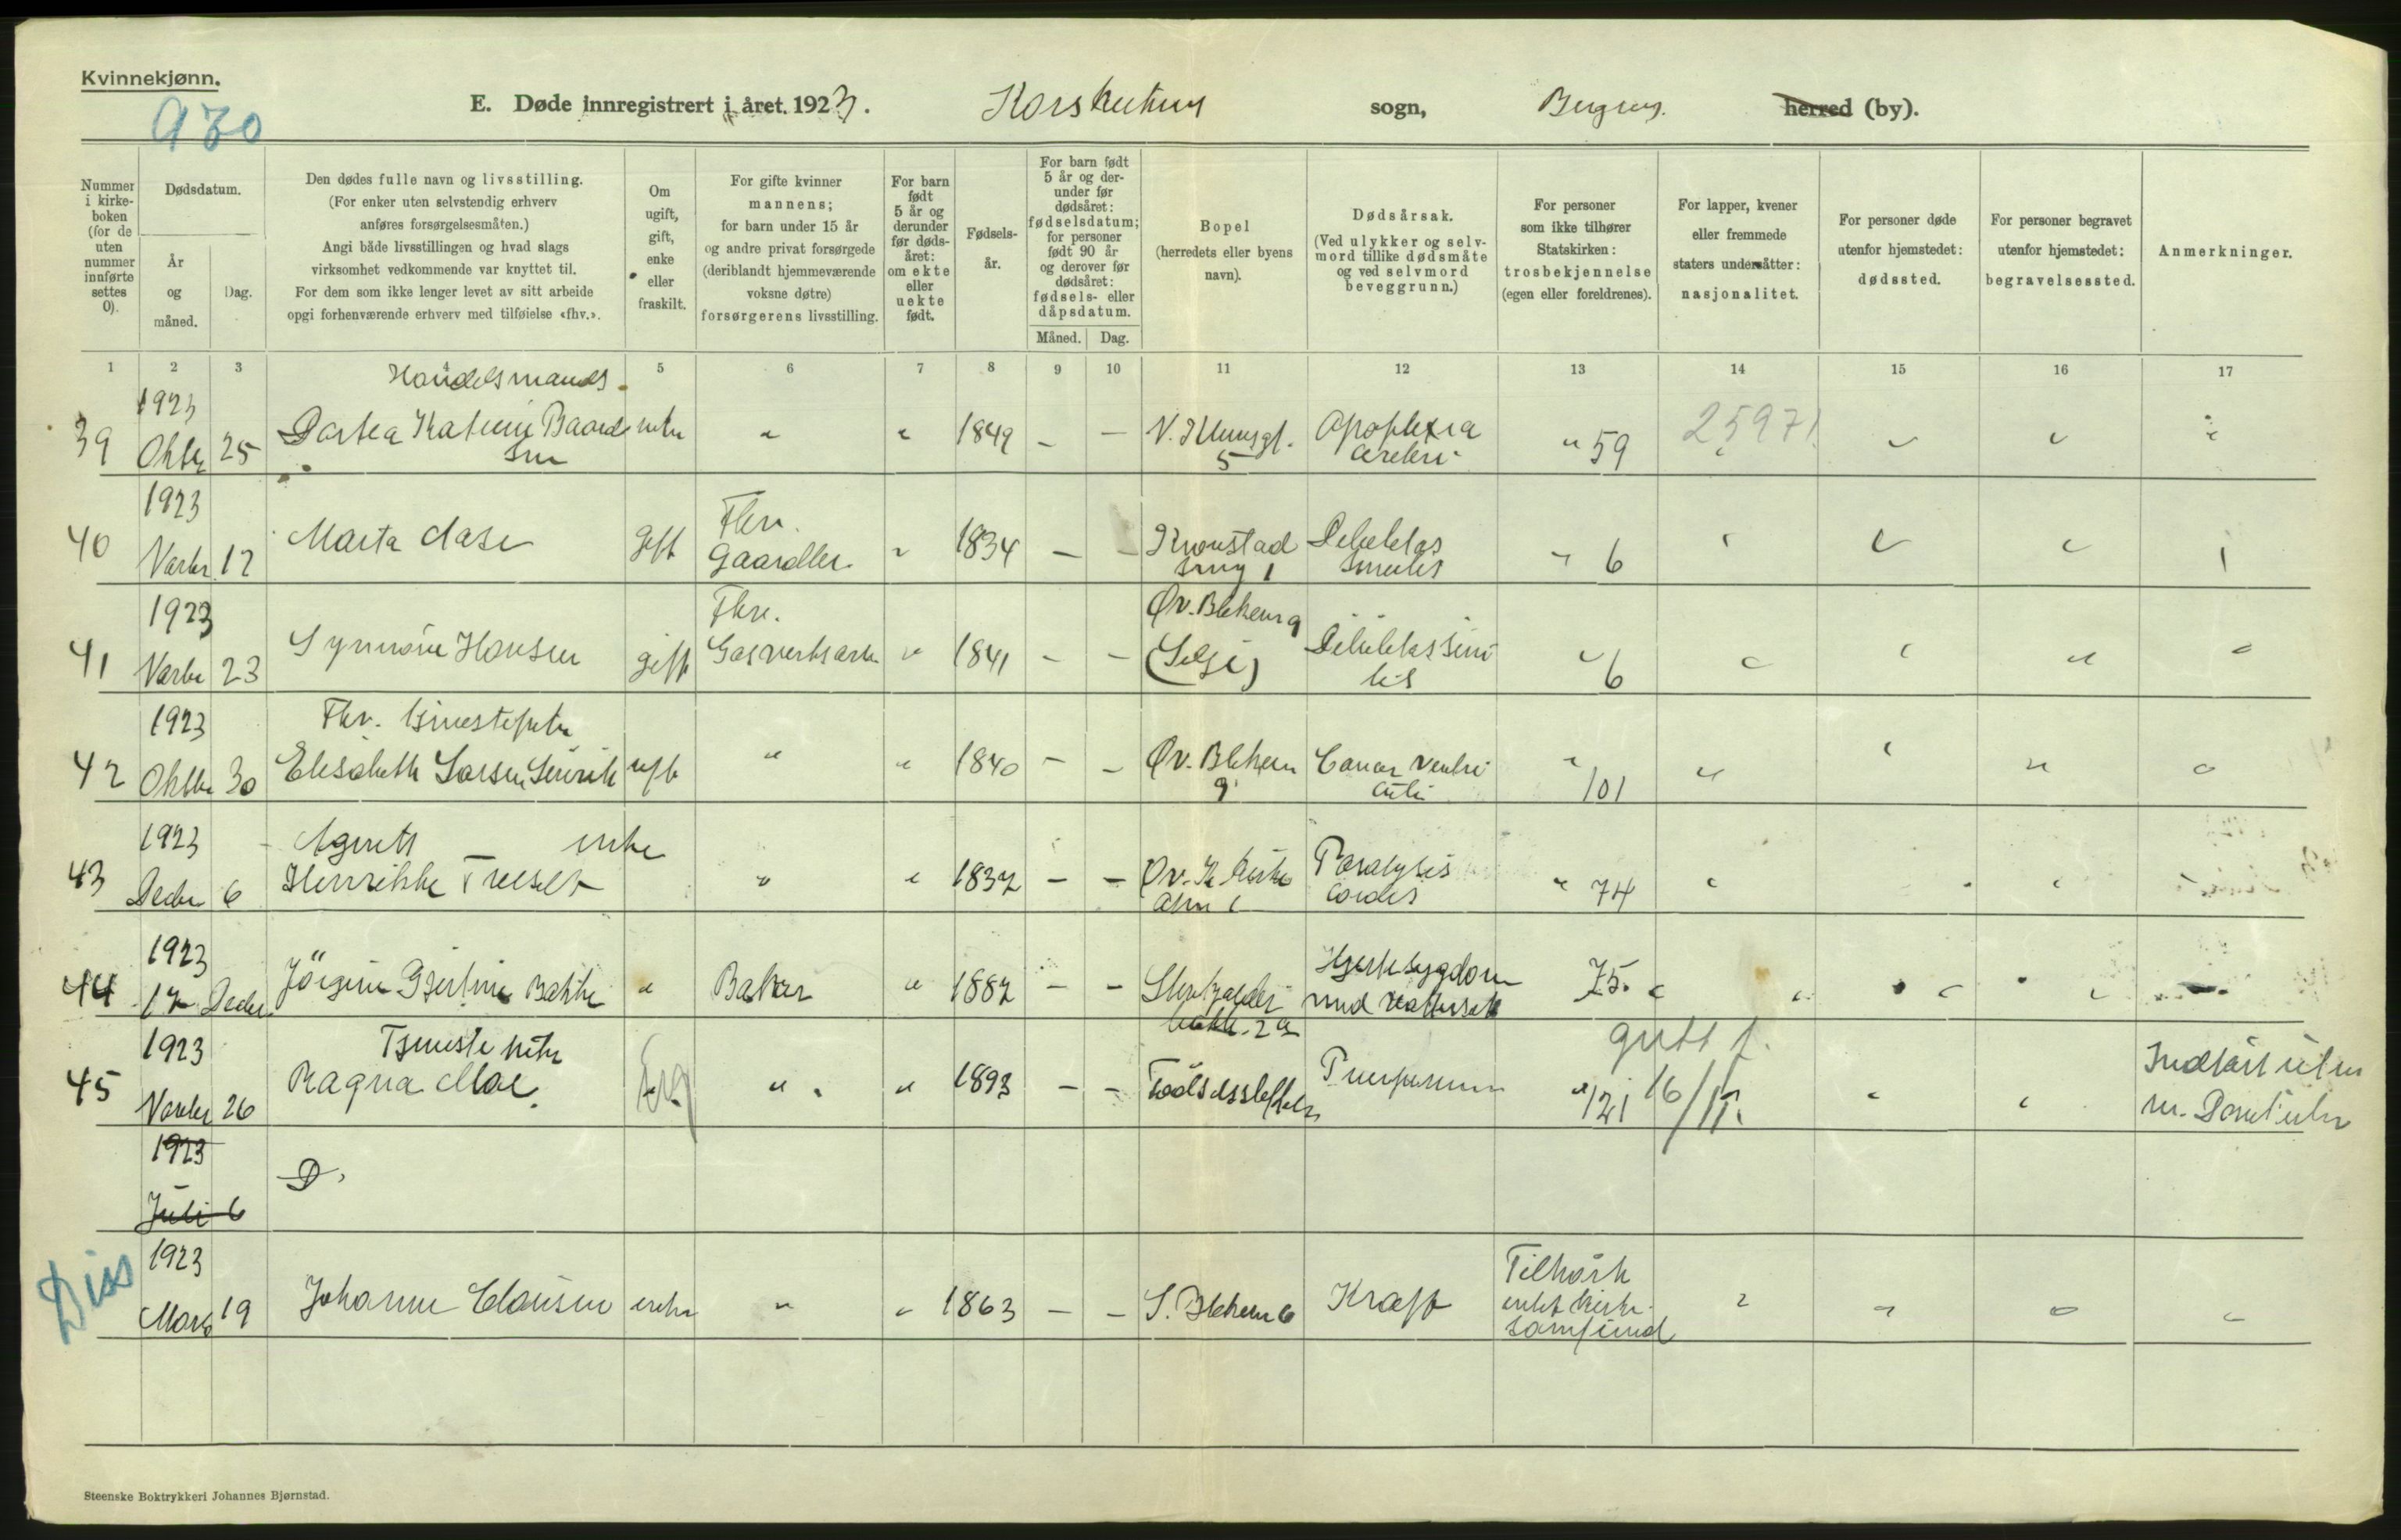 Kvinnekjønn.
970
E. Døde innregistrert i året 1923. Korskirkens sogn, Bergens herred (by).
Nummer i kirke- boken (for de uten nummer innførte settes 0).
Dødsdatum.
År og måned.
Dag.
Den dødes fulle navn og livsstilling.
(For enker uten selvstendig erhverv
anføres forsørgelsesmåten.)
Angi både livsstillingen og hvad slags
virksomhet vedkommende var knyttet til.
For dem som ikke lenger levet av sitt arbeide
opgi forhenværende erhverv med tilføielse «fhv.».
Om ugift, gift, enke eller fraskilt.
For gifte kvinner
mannens;
for barn under 15 år
og andre privat forsørgede
(deriblandt hjemmeværende
voksne døtre)
forsørgerens livsstilling.
For barn født 5 år og derunder før døds- året: om ekte eller uekte født.
Fødsels- år.
For barn født 5 år og der- under før dødsåret: fødselsdatum; for personer født 90 år og derover før dødsåret: fødsels- eller dåpsdatum.
Måned. Dag.
Bopel
(herredets eller byens
navn).
Dødsårsak.
(Ved ulykker og selv-
mord tillike dødsmåte
og ved selvmord
beveggrunn.)
For personer
som ikke tilhører
Statskirken:
trosbekjennelse
(egen eller foreldrenes).
For lapper, kvener
eller fremmede
staters undersåtter:
nasjonalitet.
For personer døde
utenfor hjemstedet:
dødssted.
For personer begravet
utenfor hjemstedet:
begravelsessted.
Anmerkninger.
1 2 3 4 5 6 7 8 9 10 11 12 13 14 15 16 17
1923 Handelsmands
39 Oktbr 25 Dortea Katrine Baard enke " " 1849 - - Apoplexia " 59 25971
sen 5 cerebri
1923 Fhv.
40 Novbr 12 Marta Aase gift Gaardbr. " 1834 - - Kronstad Debilitas " 6
1 senilis
1923 Fhv. Øv. Blekevn 9
41 Novbr 23 Synnøve Hansen gift Gasverksarb " 1841 - - (Selje) Debilitas seni " 6
lis
1923 Fhv. tjenestepike
42 Oktbr 30 Elisabeth Larsen ugift " " 1840 - - Øv. Blekevn Cancer ventri " 101
9 culi
1923 Agents enke
43 Decbr 6 Henrikke " " 1837 - - Paralysis " 74
cordis
1923
44 17 Decbr Jörgine Bakke " Baker " 1882 - - Hjertesygdom 75
med vattersot
bakk. 2a
1923 Tjeneste pike
45 Novbr 26 Ragna Moe " " 1893 - - Födselsstiftelsen " 121 16/11.
Indfört uten
nr.
1923
Juli 6 D.
Diss
1923
Mars 19 Johanne Clausen enke " " 1863 - - S. Blekevn 6 Kræft Tilhörte
intet kirke-
samfund
Steenske Boktrykkeri Johannes Bjørnstad.